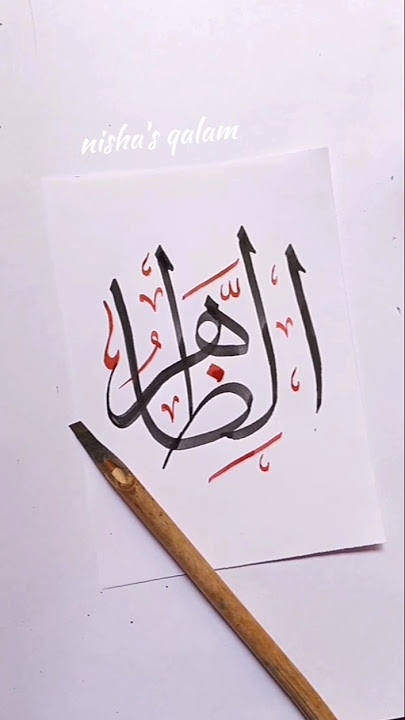 nisha's qalam
الظاهر